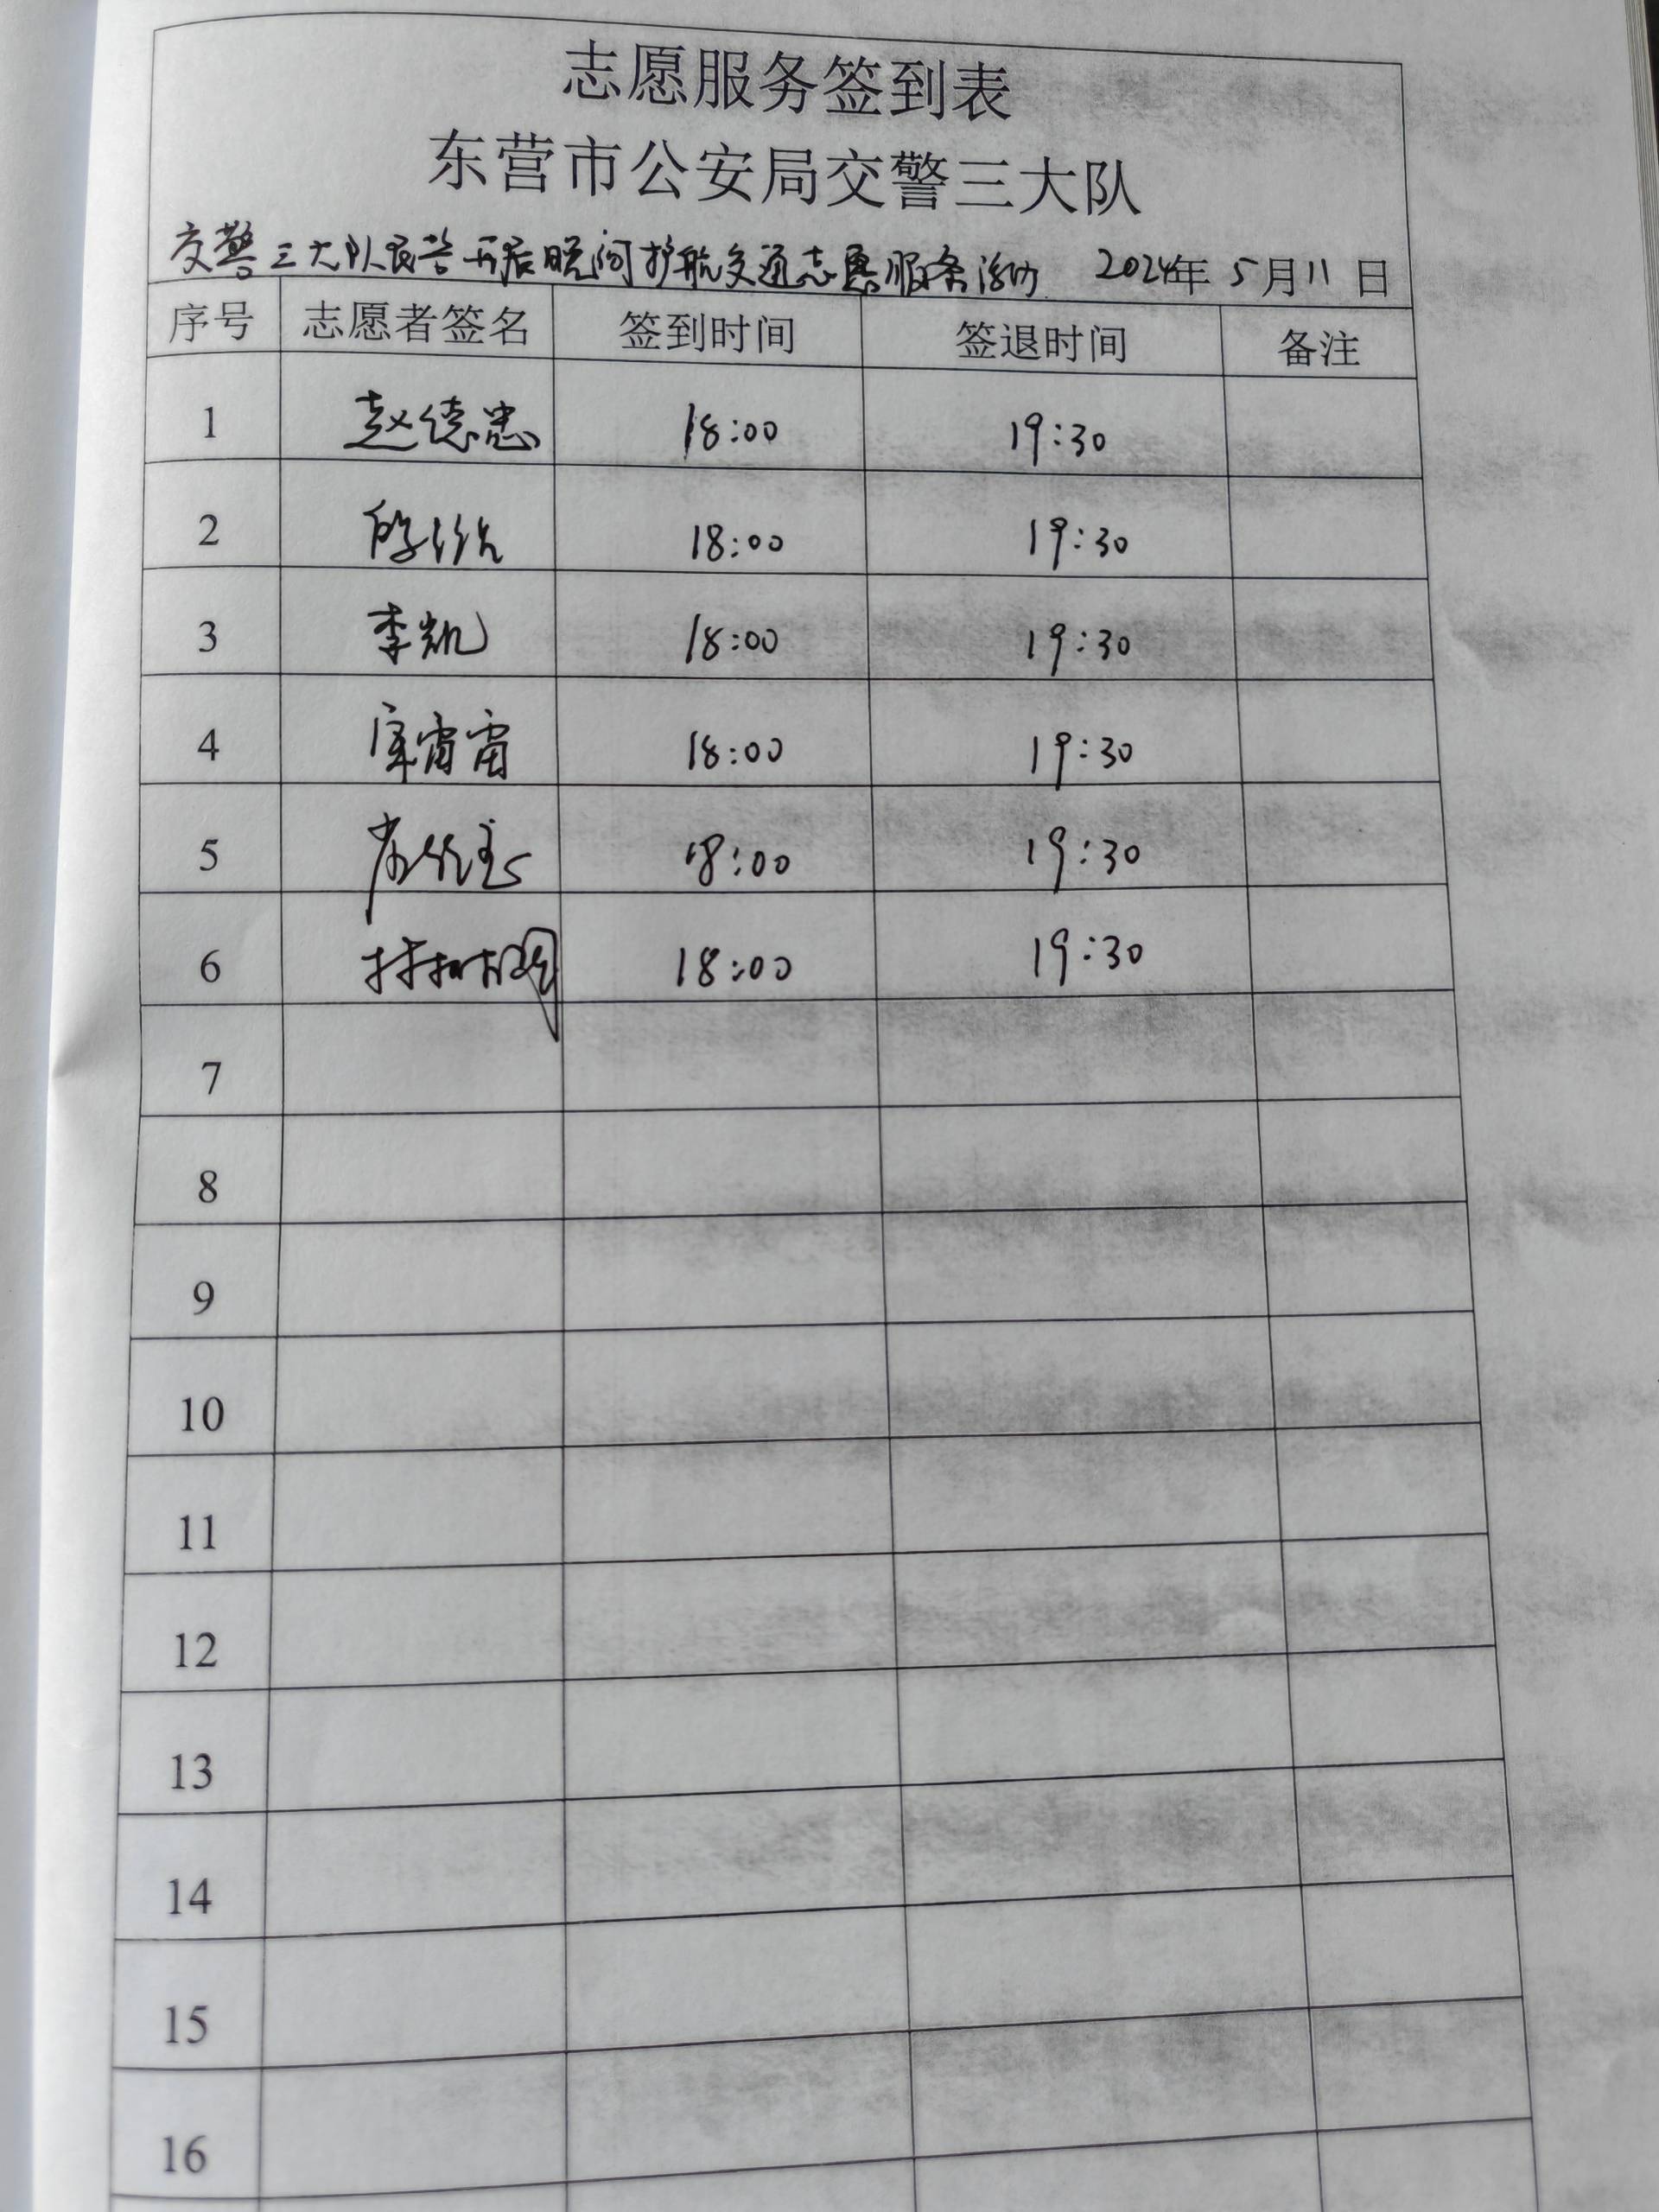 志愿服务签到表
东营市公安局交警三大队
交警三大队民警开展晚间护航交通志愿服务活动 2024年 5月11日
序号 志愿者签名 签到时间 签退时间 备注
1 赵德忠 18:00 19:30
2 18:00 19:30
3 李凯 18:00 19:30
4 雷雷 18:00 19:30
5 18:00 19:30
6 18:00 19:30
7
8
9
10
11
12
13
14
15
16